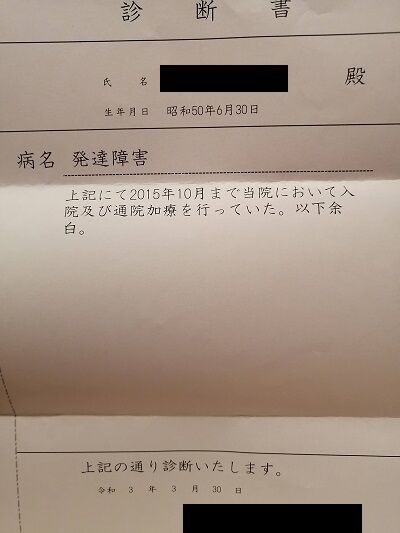 診断書
氏名 殿
生年月日 昭和50年6月30日
病名 発達障害
上記にて2015年10月まで当院において入
院及び通院加療を行っていた。以下余
白。
上記の通り診断いたします。
令和 3 年 3 月 30 日